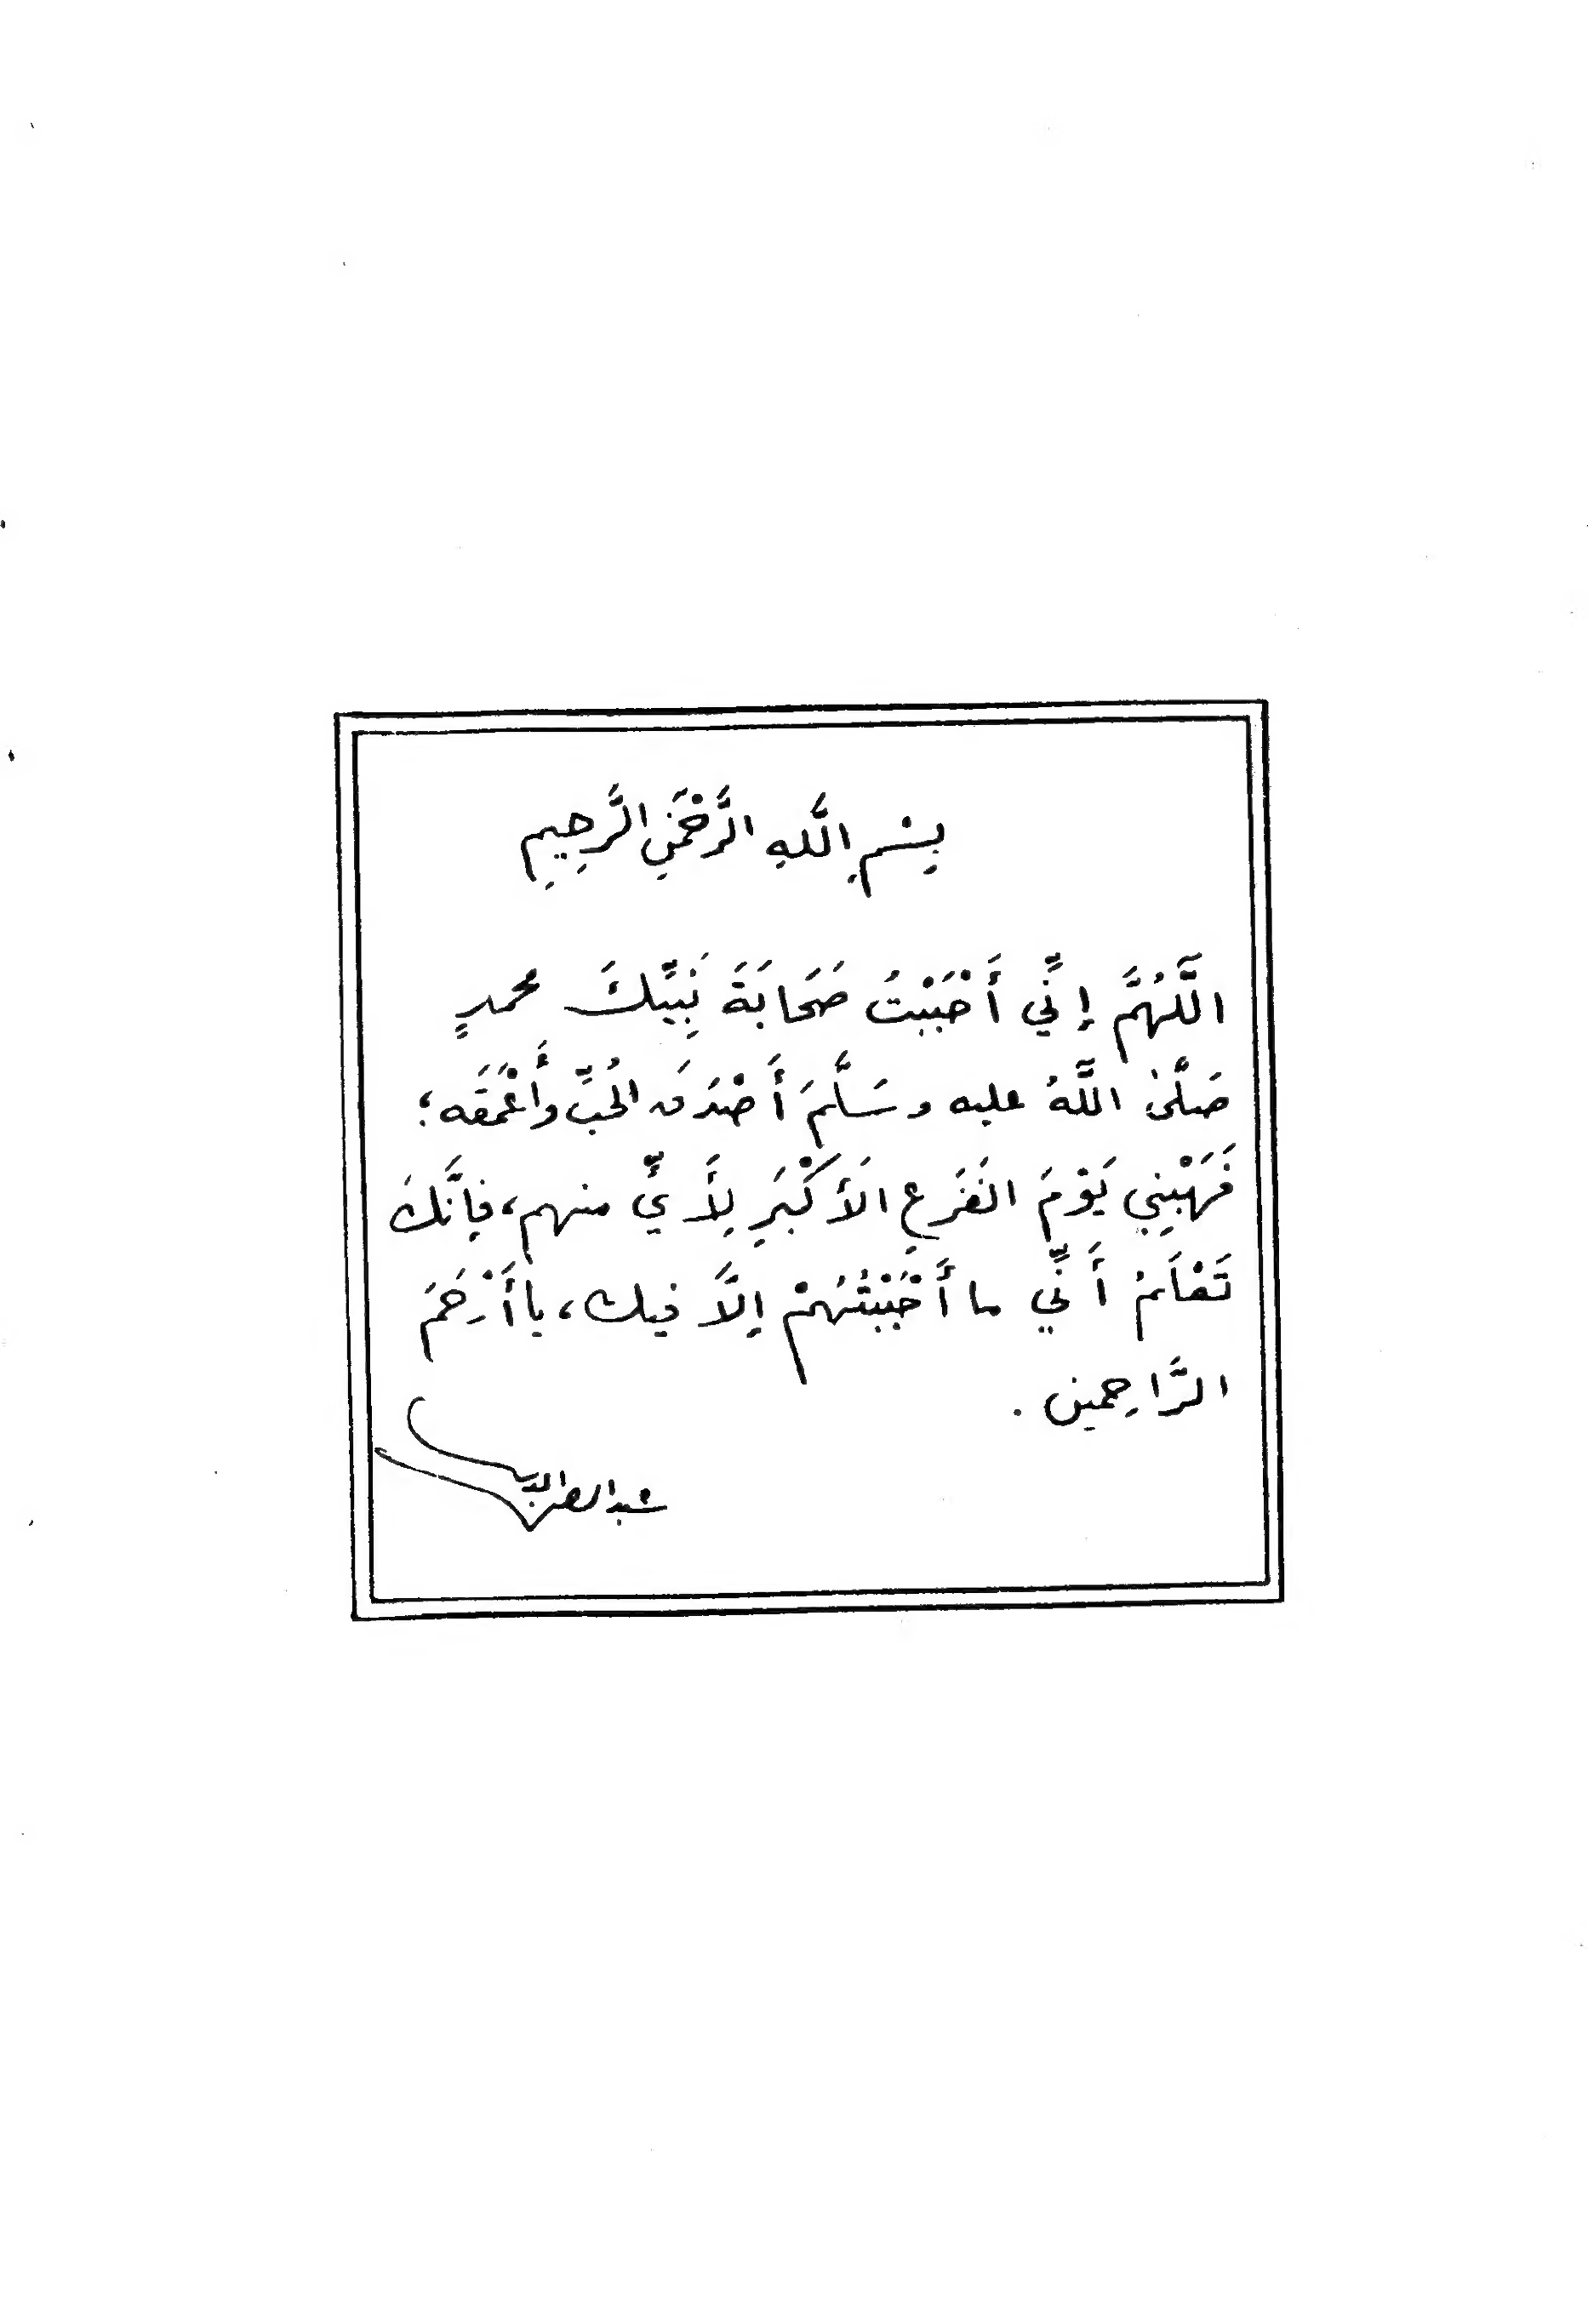 بِسْمِ اللَّهِ الرَّحْمَنِ الرَّحِيمِ
اللَّهُمَّ إِنِّي أَحْبَبْتُ صَحَابَةَ نَبِيِّكَ محمدٍ
صَلَّىٰ اللَّهُ عليه وسَلَّمَ أَصْدَقَ الحُبِّ وأَعْمَقَه؛
فَهَبْنِي يَوْمَ الفَزَعِ الأَكْبَرِ لِأَيٍّ منهم، فإنَّكَ
تَعْلَمُ أَنِّي ما أَحْبَبْتُهُمْ إلَّا فيك، يا أَرْحَمَ
الرَّاحِمين .